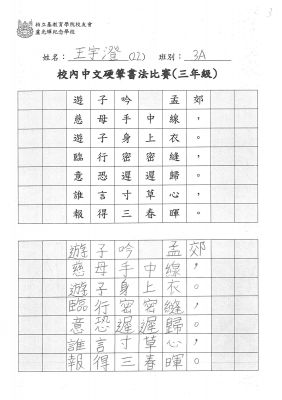 柏立基教育學院校友會
盧光輝紀念學校
姓名: 王宇澄 (22) 班別: 3A
校內中文硬筆書法比賽(三年級)
遊子吟 孟郊
慈母手中線，
遊子身上衣。
臨行密密縫，
意恐遲遲歸。
誰言寸草心，
報得三春暉。
遊子吟 孟郊
慈母手中線，
遊子身上衣。
臨行密密縫，
意恐遲遲歸。
誰言寸草心，
報得三春暉。